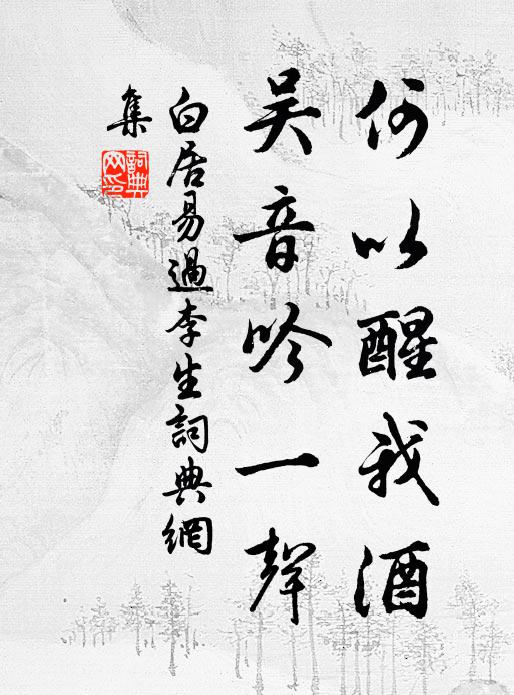 何以醒我酒
吳音吟一聲
白居易過李生詞典網
集
詞典網印